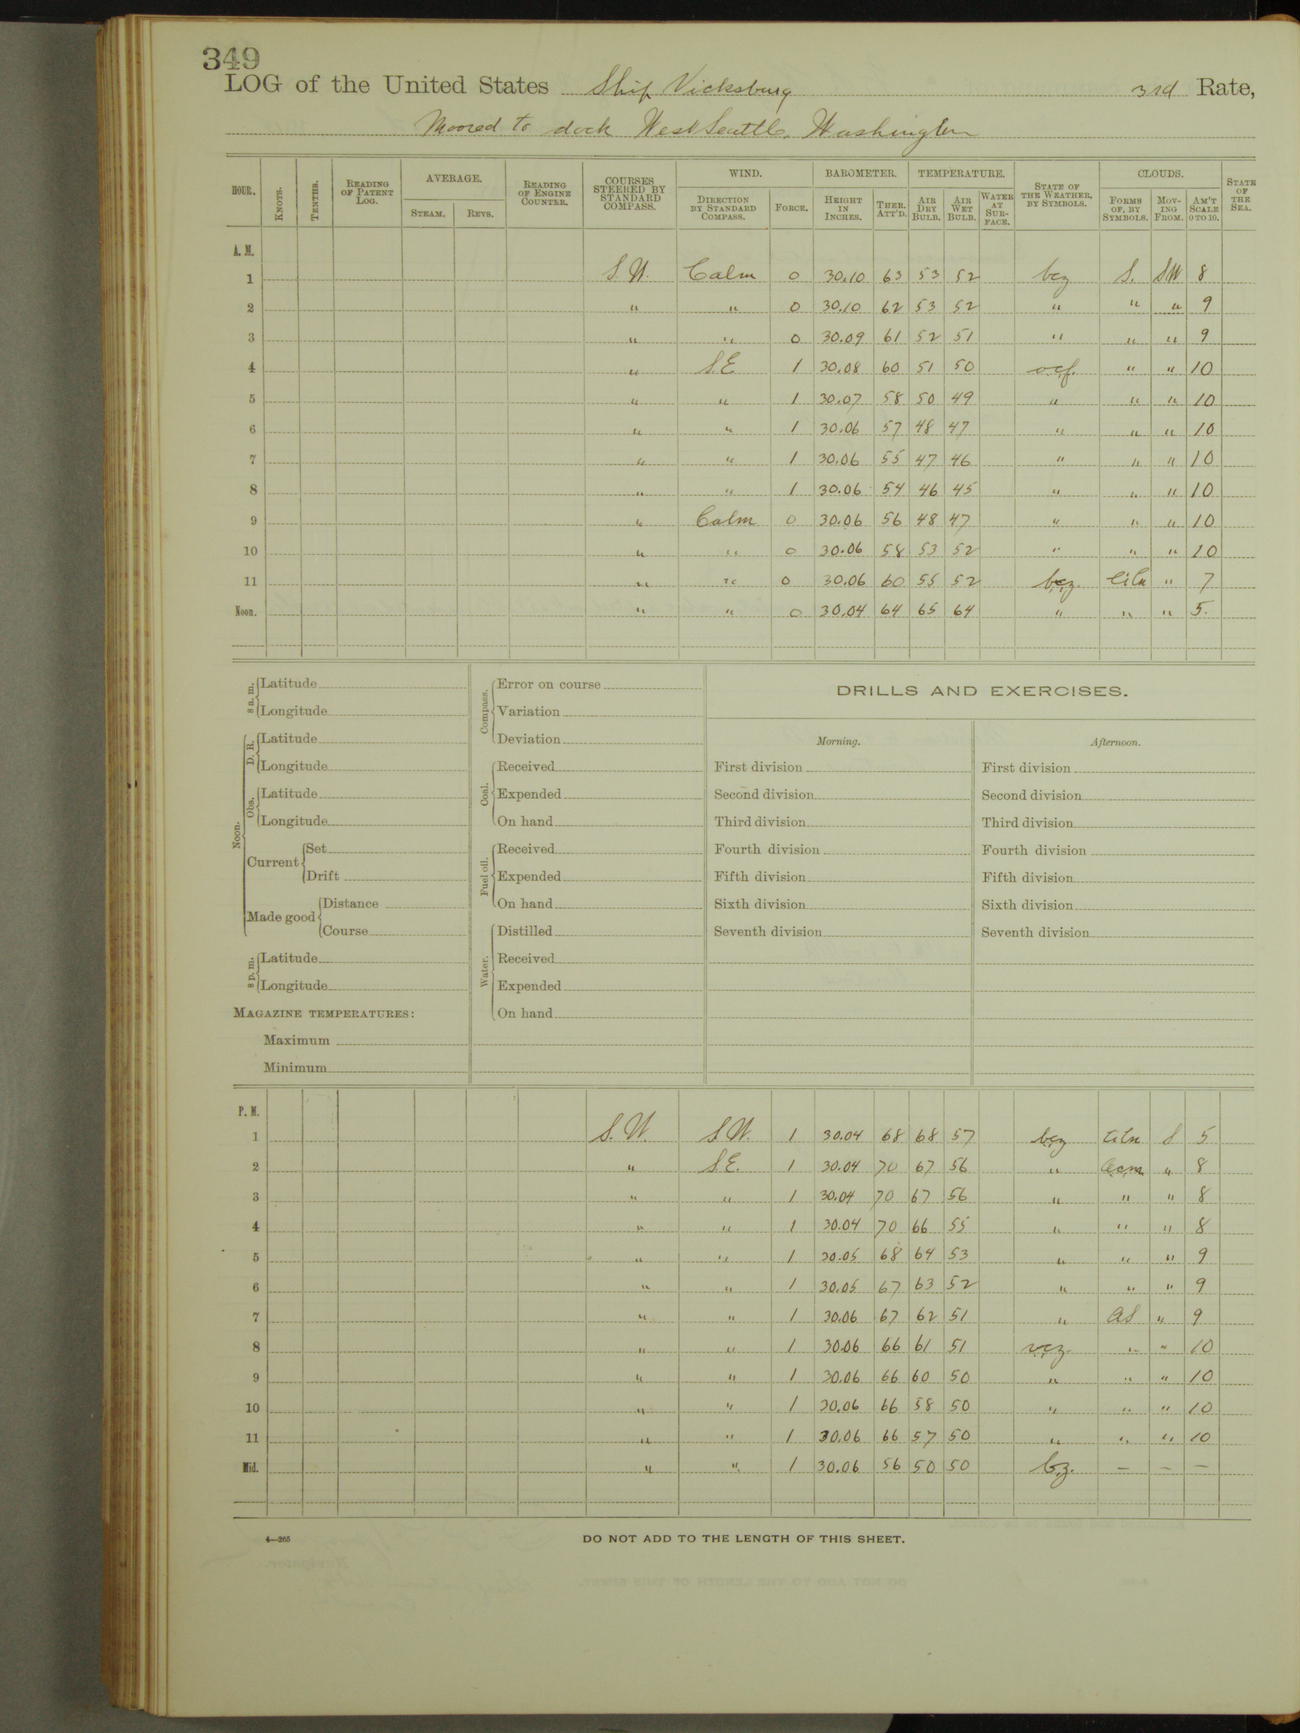 349
LOG of the United States Ship Vicksburg 3rd Rate,
Moored to dock West Seattle, Washington
HOUR. KNOTS. TENTHS. READING OF PATENT LOG. AVERAGE. STEAM. REVS. READING OF ENGINE COUNTER. COURSES STEERED BY STANDARD COMPASS. WIND. DIRECTION BY STANDARD COMPASS. FORCE. BAROMETER. HEIGHT IN INCHES. THER. ATT'D. TEMPERATURE. AIR DRY BULB. AIR WET BULB. WATER AT SURFACE. STATE OF THE WEATHER, BY SYMBOLS. CLOUDS. FORMS OF, BY SYMBOLS. MOVING FROM. AM'T SCALE 0 TO 10. STATE OF THE SEA.
A. M.
1 S.W. Calm 0 30.10 63 53 52 bcz S. SW 8
2 " " 0 30.10 62 53 52 " " " 9
3 " " 0 30.09 61 52 51 " " " 9
4 " S.E 1 30.08 60 51 50 ocf. " " 10
5 " " 1 30.07 58 50 49 " " " 10
6 " " 1 30.06 57 48 47 " " " 10
7 " " 1 30.06 55 47 46 " " " 10
8 " " 1 30.06 54 46 45 " " " 10
9 " Calm 0 30.06 56 48 47 " " " 10
10 " " 0 30.06 58 53 52 " " " 10
11 " " 0 30.06 60 55 52 bcz. " 7
Noon. " " 0 30.04 64 65 64 " " " 5.
8 a. m. Latitude
Longitude
Noon. D. R. Latitude
Longitude
Obs. Latitude
Longitude
Current Set
Drift
Made good Distance
Course
8 p. m. Latitude
Longitude
MAGAZINE TEMPERATURES:
Maximum
Minimum
Compass. Error on course
Variation
Deviation
Coal. Received
Expended
On hand
Fuel oil. Received
Expended
On hand
Water. Distilled
Received
Expended
On hand
DRILLS AND EXERCISES.
Morning.
First division
Second division
Third division
Fourth division
Fifth division
Sixth division
Seventh division
Afternoon.
First division
Second division
Third division
Fourth division
Fifth division
Sixth division
Seventh division
P. M.
1 S.W. S.W. 1 30.04 68 68 57 bcz S 5
2 " S.E. 1 30.04 70 67 56 " " 8
3 " " 1 30.04 70 67 56 " " " 8
4 " " 1 30.04 70 66 55 " " " 8
5 " " 1 30.05 68 64 53 " " " 9
6 " " 1 30.05 67 63 52 " " " 9
7 " " 1 30.06 67 62 51 " AS " 9
8 " " 1 30.06 66 61 51 " " 10
9 " " 1 30.06 66 60 50 " " " 10
10 " " 1 30.06 66 58 50 " " " 10
11 " " 1 30.06 66 57 50 " " " 10
Mid. " " 1 30.06 56 50 50 bz. — — —
4—265
DO NOT ADD TO THE LENGTH OF THIS SHEET.